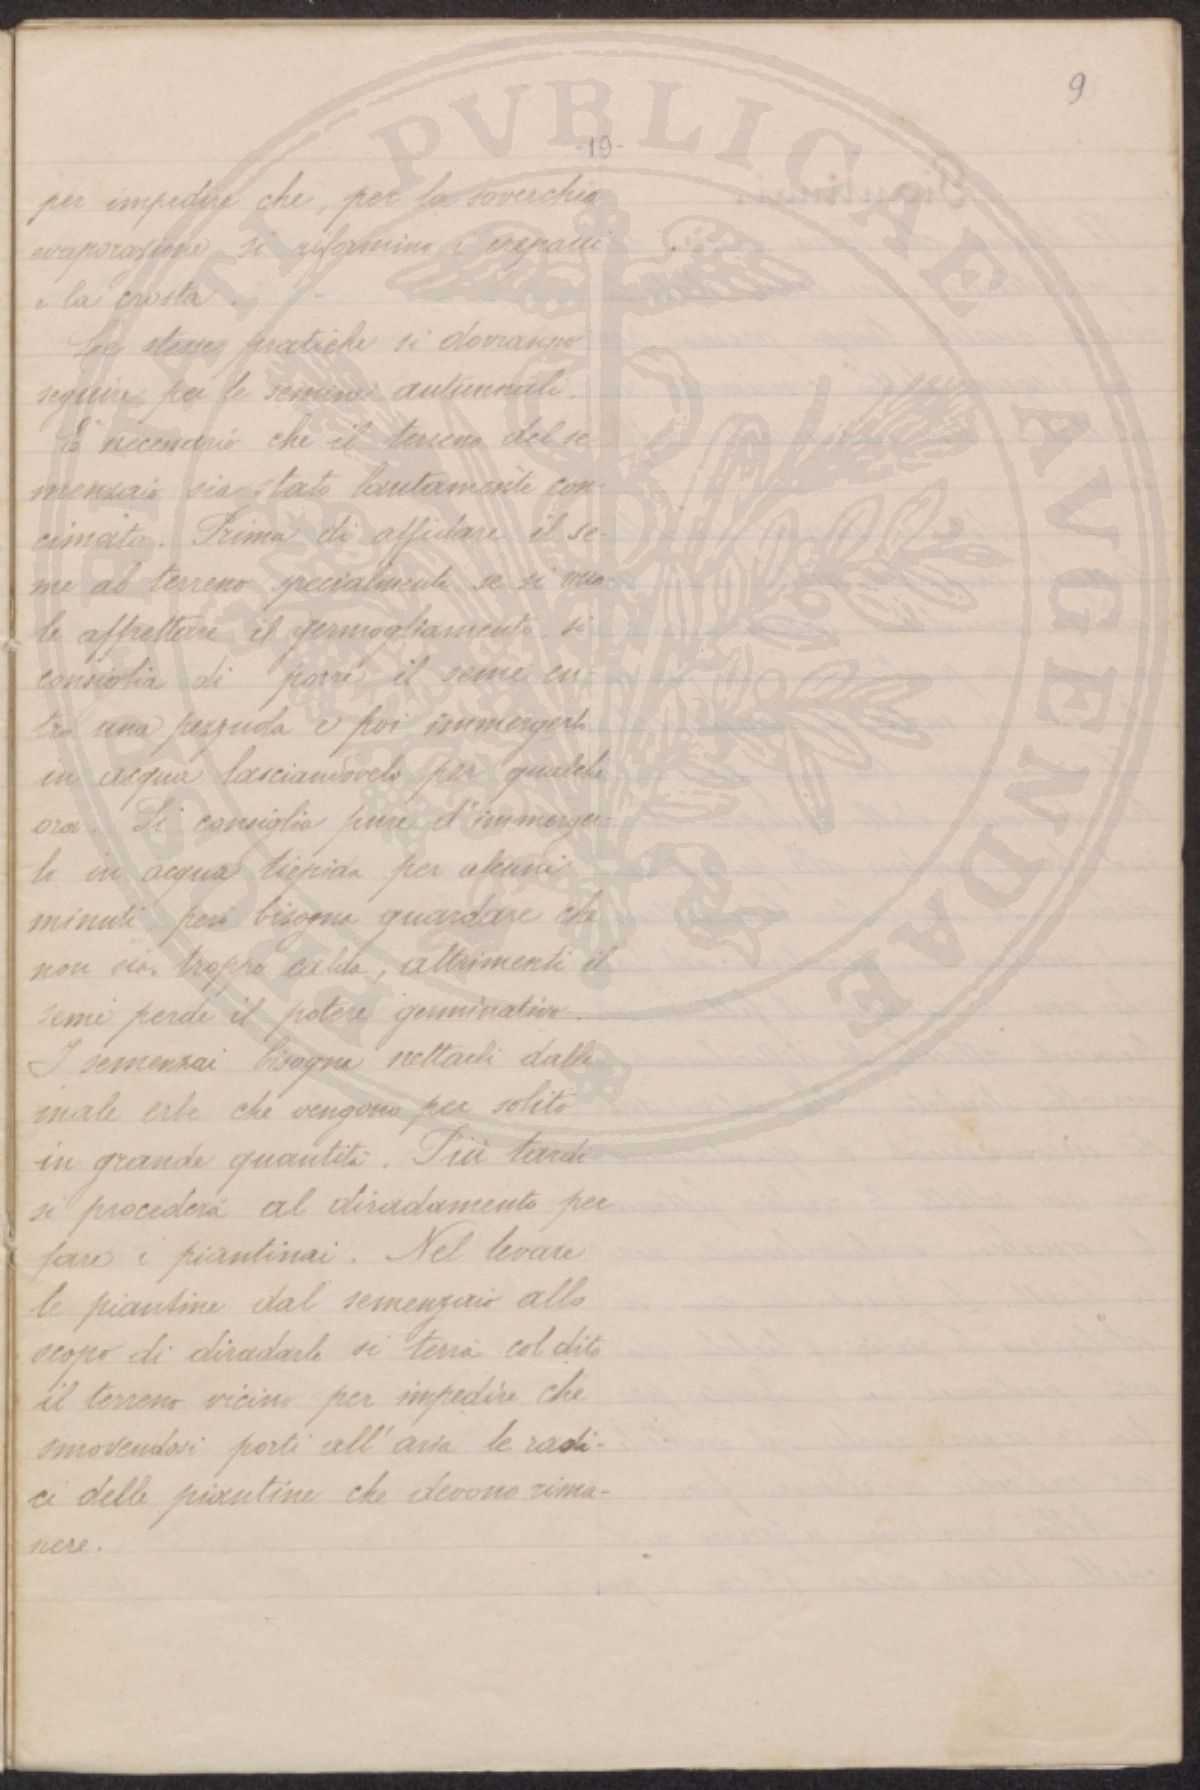 9
-19-
per impedire che, per la soverchia
evaporazione si riformino i crepacci
e la crosta.
Le stesse pratiche si dovranno
seguire per le semine autunnali.
E' necessario che il terreno del se-
menzaio sia stato lautamente con-
cimato. Prima di affidare il se-
me al terreno specialmente se si vuo-
le affrettare il germogliamento si
consiglia di porre il seme en-
tro una pezzuola e poi immergerlo
in acqua lasciandovelo per qualche
ora. Si consiglia pure d'immerger-
lo in acqua tiepida per alcuni
minuti però bisogna guardare che
non sia troppo calda, altrimenti il
seme perde il potere germinativo.
I semenzai bisogna nettarli dalle
male erbe che vengono per solito
in grande quantità. Più tardi
si procederà al diradamento per
fare i piantinai. Nel levare
le piantine dal semenzaio allo
scopo di diradarle si terrà col dito
il terreno vicino per impedire che
smovendosi porti all'aria le radi-
ci delle piantine che devono rima-
nere.
PUBLICAE AVGENDAE